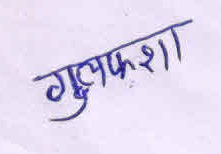 गुलफशा